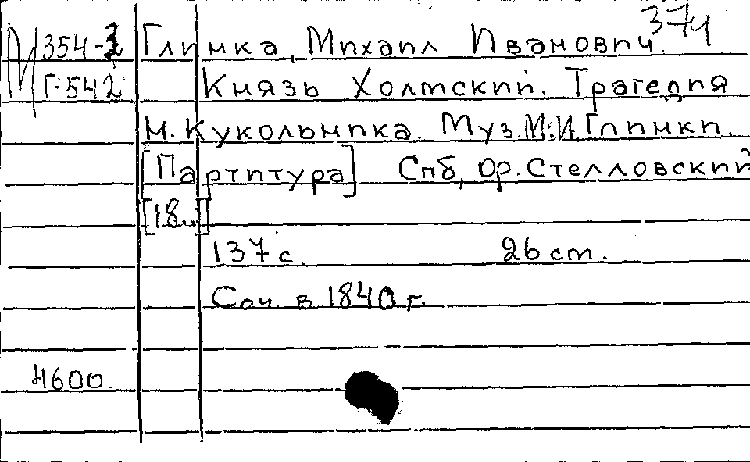 374
М354-3 Глинка, Михаил Иванович.
Г-542 Князь Холмский. Трагедия
Н. Кукольника. Муз. М.И. Глинки.
[Партитура] Спб, Ф. Стелловский
[18..]
137 с. 26 cm.
Соч. в 1840 г.
4600